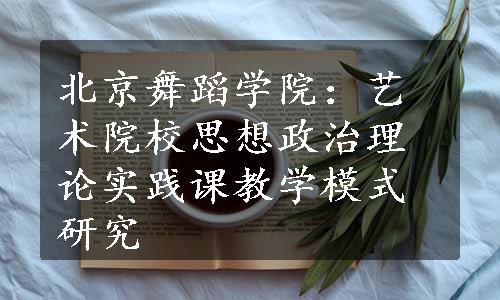 北京舞蹈学院：艺
术院校思想政治理
论实践课教学模式
研究